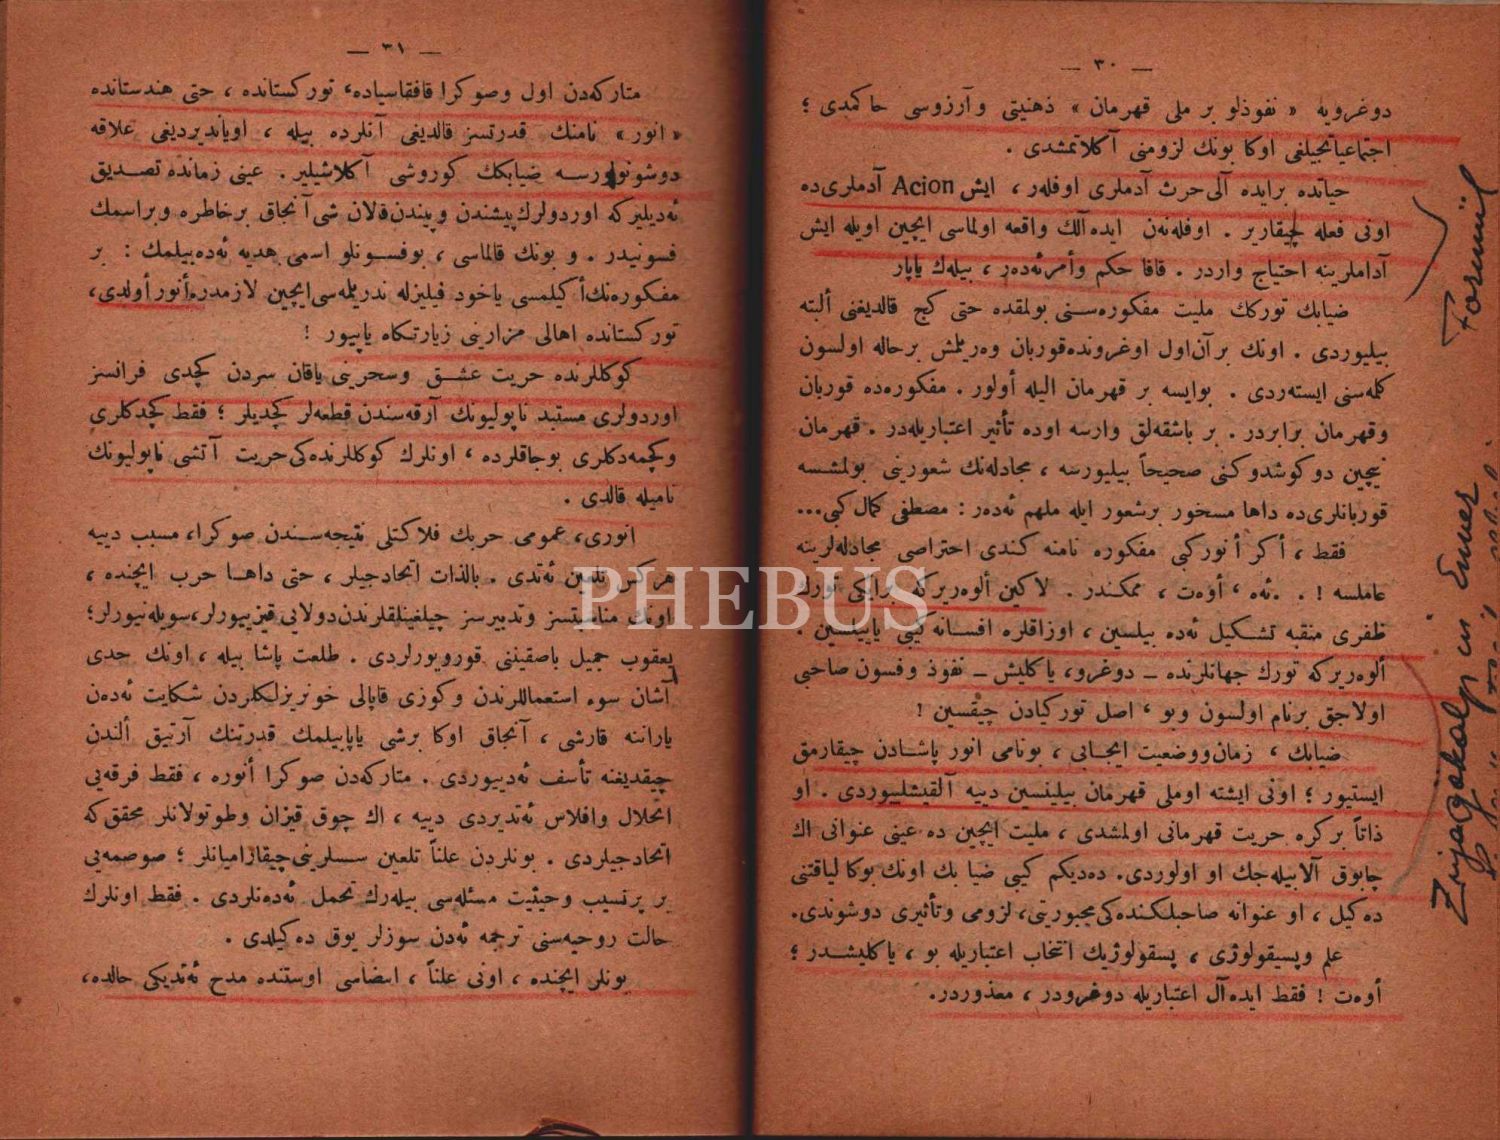 — ٣٠ —
دوغرویه « نفوذلو بر ملی قهرمان » ذهنیتی وآرزوسی حاکمدی ؛
اجتماعیاتجیلغی اوکا بونك لزومنی آکلاتمشدی .
حیاتده برایده آلی حرث آدملری اوفلەر ، ایش Acion آدملری‌ده
اونی فعله چیقاریر . اوفلەنەن ایدەآلك واقعه اولماسی ایچین اویله ایش
آداملرینه احتیاج واردر . قافا حکم وأمرئەدەر ، بیلەك یاپار
ضیابك تورکك ملیت مفکورەسنی بولمقده حتی کج قالدیغنی ألبته
بیلیوردی . اونك برآن‌اول اوغرونده‌قوربان وەریلمش برحاله اولسون
کلمه‌سنی ایستەردی . بوایسه بر قهرمان الیله أولور . مفکورەده قوربان
وقهرمان برابردر . بر باشقه‌لق وارسه اوده تأثیر اعتباریله‌در . قهرمان
نیچین دوکوشدوکنی صحیحاً بیلیورسه ، مجادله‌نك شعورینی بولمشسه
قوربانلری‌ده داها مسخور برشعور ایله ملهم ئەدەر : مصطفی کمال کبی...
فقط ، أکر أنورکبی مفکوره نامنه کندی احتراصی مجادله‌لرینه
عاملسه ! . . ئه ، أوەت ، ممکندر . لاکین ألوەریرکه برایکی تورك
ظفری منقبه تشکیل ئەده بیلسین ، اوزاقلره افسانه کیبی یاییلسین .
ألوەریرکه تورك جهانلرنده – دوغرو، یاکلیش – نفوذ وفسون صاحبی
اولاجق برنام اولسون وبو ، اصل تورکیادن چیقسین !
ضیابك ، زمان‌ووضعیت ایجابی ، بونامی انور پاشادن چیقارمق
ایستیور ؛ اونی ایشته اوملی قهرمان بیلینسین دییه آلقیشلییوردی . او
ذاتاً برکره حریت قهرمانی اولمشدی ، ملیت ایچین ده عینی عنوانی اك
چابوق آلابیله‌جك او اولوردی. دەدیکم کیبی ضیا بك اونك بوکا لیاقتنی
دەکیل ، او عنوانه صاحبلکنده‌کی‌مجبوریتی، لزومی وتأثیری دوشوندی.
علم وپسیقولوژی ، پسقولوژیك انتخاب اعتباریله بو ، یاکلیشدر ؛
أوەت ! فقط ایدەآل اعتباریله دوغرودر ، معذوردر.
Formül
Ziyagökalp in Enver
— ٣١ —
متارکه‌دن اول وصوکرا قافقاسیاده، تورکستانده ، حتی هندستانده
« انور» نامنك قدرتسز قالدیغی آنلرده بیله ، اویاندیردیغی علاقه
دوشونولورسه ضیابکك کوروشی آکلاشیلیر . عینی زمانده تصدیق
ئەدیلیرکه اوردولرك پیشندن وپیندن‌قالان شی آنجاق برخاطره وبراسمك
فسونیدر . و بونك قالماسی ، بوفسونلو اسمی هدیه ئەدەبیلمك : بر
مفکورەنك‌أکیلمسی یاخود فیلیزله ندریلمه‌سی‌ایچین لازمدر. أنور أولدی،
تورکستانده اهالی مزارینی زیارتکاه یاپیور !
کوکللرنده حریت عشق وسحرینی یاقان سردن کچدی فرانسز
اوردولری مستبد ناپولیونك آرقه‌سندن قطعه‌لر کچدیلر ؛ فقط کچدکلری
وکچمه‌دکلری بوجاقلرده ، اونلرك کوکللرنده‌کی‌حریت آتشی ناپولیونك
نامیله قالدی .
انوری، عمومی حربك فلاکتلی نتیجه‌سندن صوکرا، مسبب دییه
هرکس تلعین ئەتدی . بالذات اتحادجیلر ، حتی داها حرب ایچنده ،
اونك مناسبتسز وتدبیرسز چیلغینلقلرندن‌دولایی قیزییورلر، سویله‌نیورلر؛
یعقوب جمیل باصقیننی قورویورلردی . طلعت پاشا بیله ، اونك حدی
آشان سوء استعماللرندن وکوزی قاپالی خونریزلکلردن شکایت ئەدەن
یاراننه قارشی ، آنجاق اوکا برشی یاپابیلمك قدرتنك آرتیق ألندن
چیقدیغنه تأسف ئەدییوردی . متارکه‌دن صوکرا أنوره ، فقط فرقه‌یی
انحلال وافلاس ئەتدیردی دییه ، اك چوق قیزان وطوتولانلر محققکه
اتحادجیلردی . بونلردن علناً تلعین سسلرینی‌چیقارامیانلر ؛ صوصمه‌یی
بر پرنسیب وحیثیت مسئله‌سی بیله‌رك تحمل ئەدەنلردی . فقط اونلرك
حالت روحیه‌سنی ترجمه ئەدن سوزلر یوق دەکیلدی .
بونلر ایچنده ، اونی علناً ، امضاسی اوستنده مدح ئەتدیکی حالده،
PHEBUS